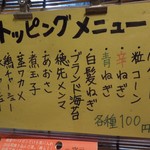 トッピングメニュー
粒コーン
辛ねぎ
青ねぎ
白髪ねぎ
ブランド海苔
穂先メンマ
あおさ
煮玉子
茎ワカメ
各種100円